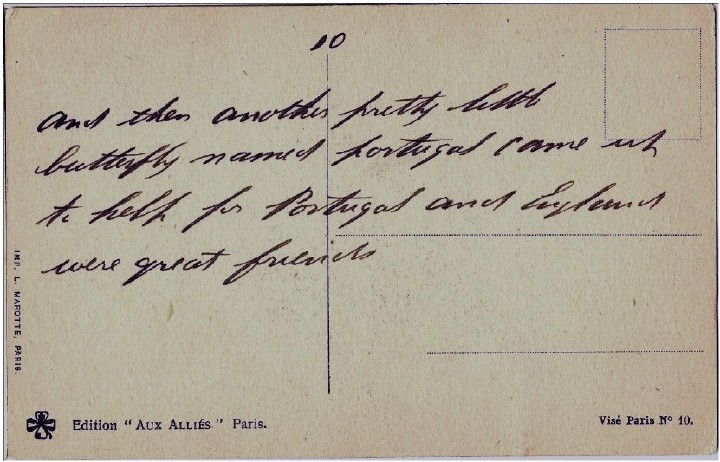 10
and then another pretty little
butterfly named Portugal came up
to help for Portugal and England
were great friends
IMP. L. MAROTTE, PARIS.
Edition "AUX ALLIÉS" Paris.
Visé Paris Nº 10.